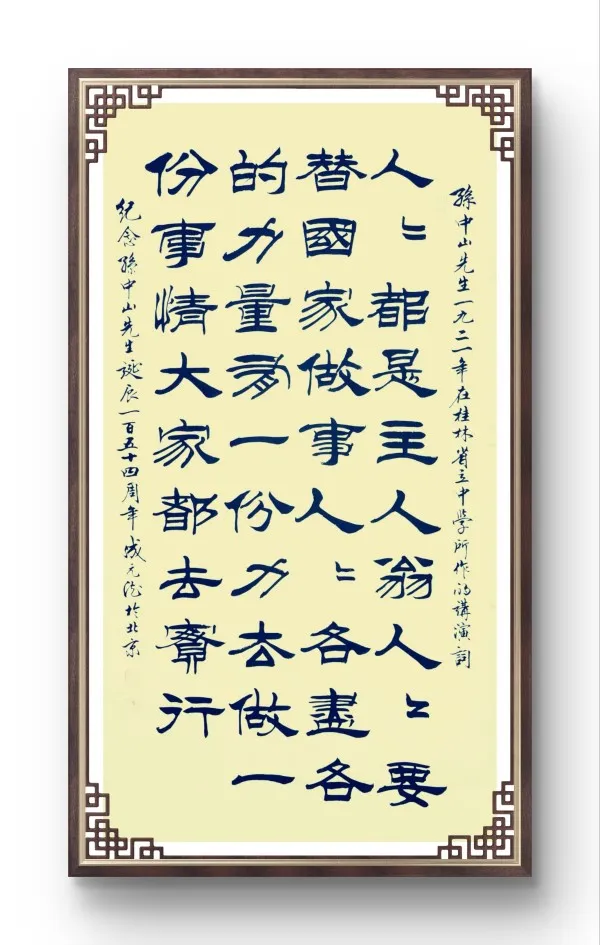 孫中山先生一九二一年在桂林省立中學所作的講演詞
人〻都是主人翁人〻要
替國家做事人〻各盡各
的力量有一份力去做一
份事情大家都去實行
紀念孫中山先生誕辰一百五十四周年 成元 於北京